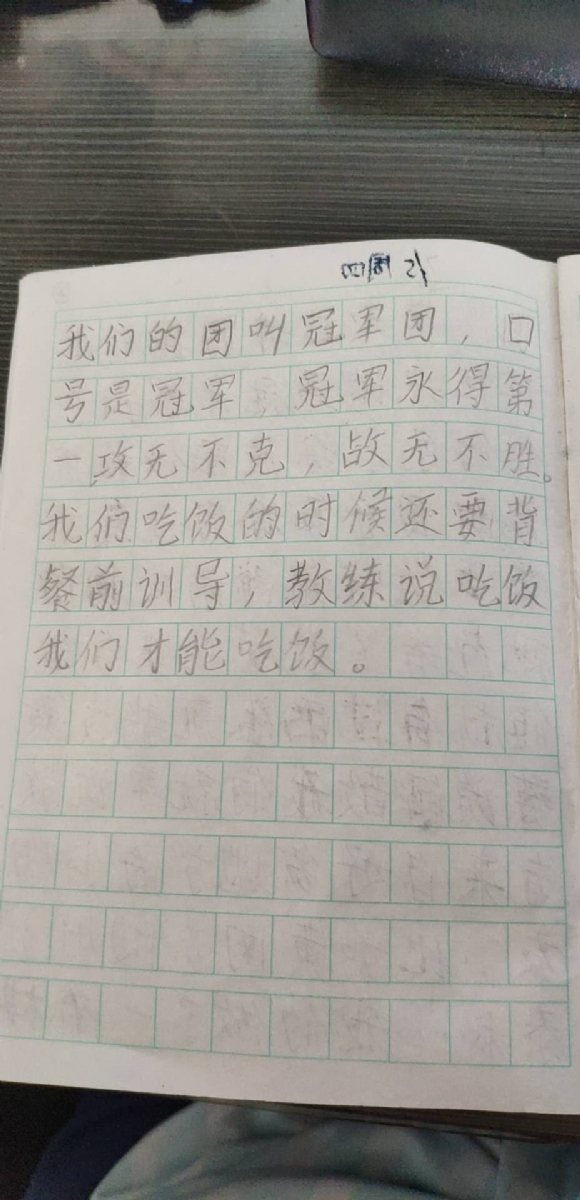 我们的团叫冠军团，口
号是冠军 冠军永得第
一攻无不克，战无不胜。
我们吃饭的时候还要背
餐前训导，教练说吃饭
我们才能吃饭。